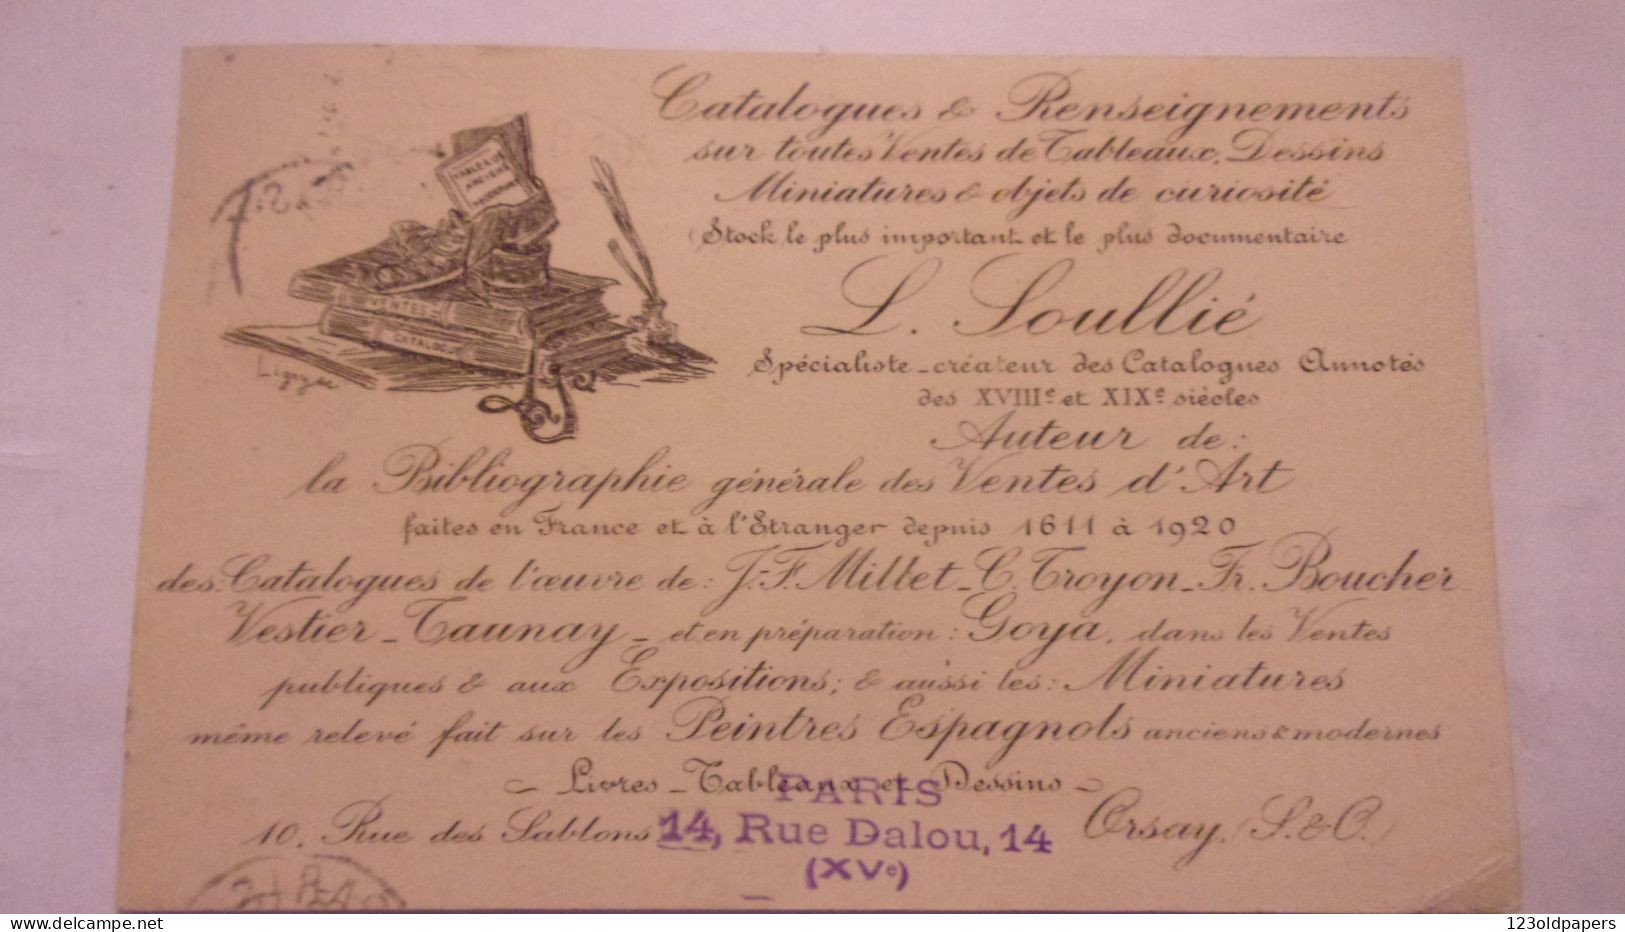 Catalogues & Renseignements
sur toutes Ventes de Tableaux, Dessins
Miniatures & objets de curiosité
(Stock le plus important et le plus documentaire
L. Soullié
Spécialiste-créateur des Catalogues Annotés
des XVIIIe et XIXe siècles
Auteur de:
la Bibliographie générale des Ventes d'Art
faites en France et à l'Etranger depuis 1611 à 1920
des: Catalogues de l'œuvre de: J.-F. Millet - C. Troyon - Fr. Boucher
Vestier - Taunay - et en préparation: Goya, dans les Ventes
publiques & aux Expositions; & aussi les: Miniatures
même relevé fait sur les Peintres Espagnols anciens & modernes
Livres - Tableaux et Dessins
10, Rue des Sablons Orsay, (S.&O.)
PARIS
14, Rue Dalou, 14
(XVe)
TABLEAUX
ANCIENS
VENTES
CATALOGUE
123oldpapers